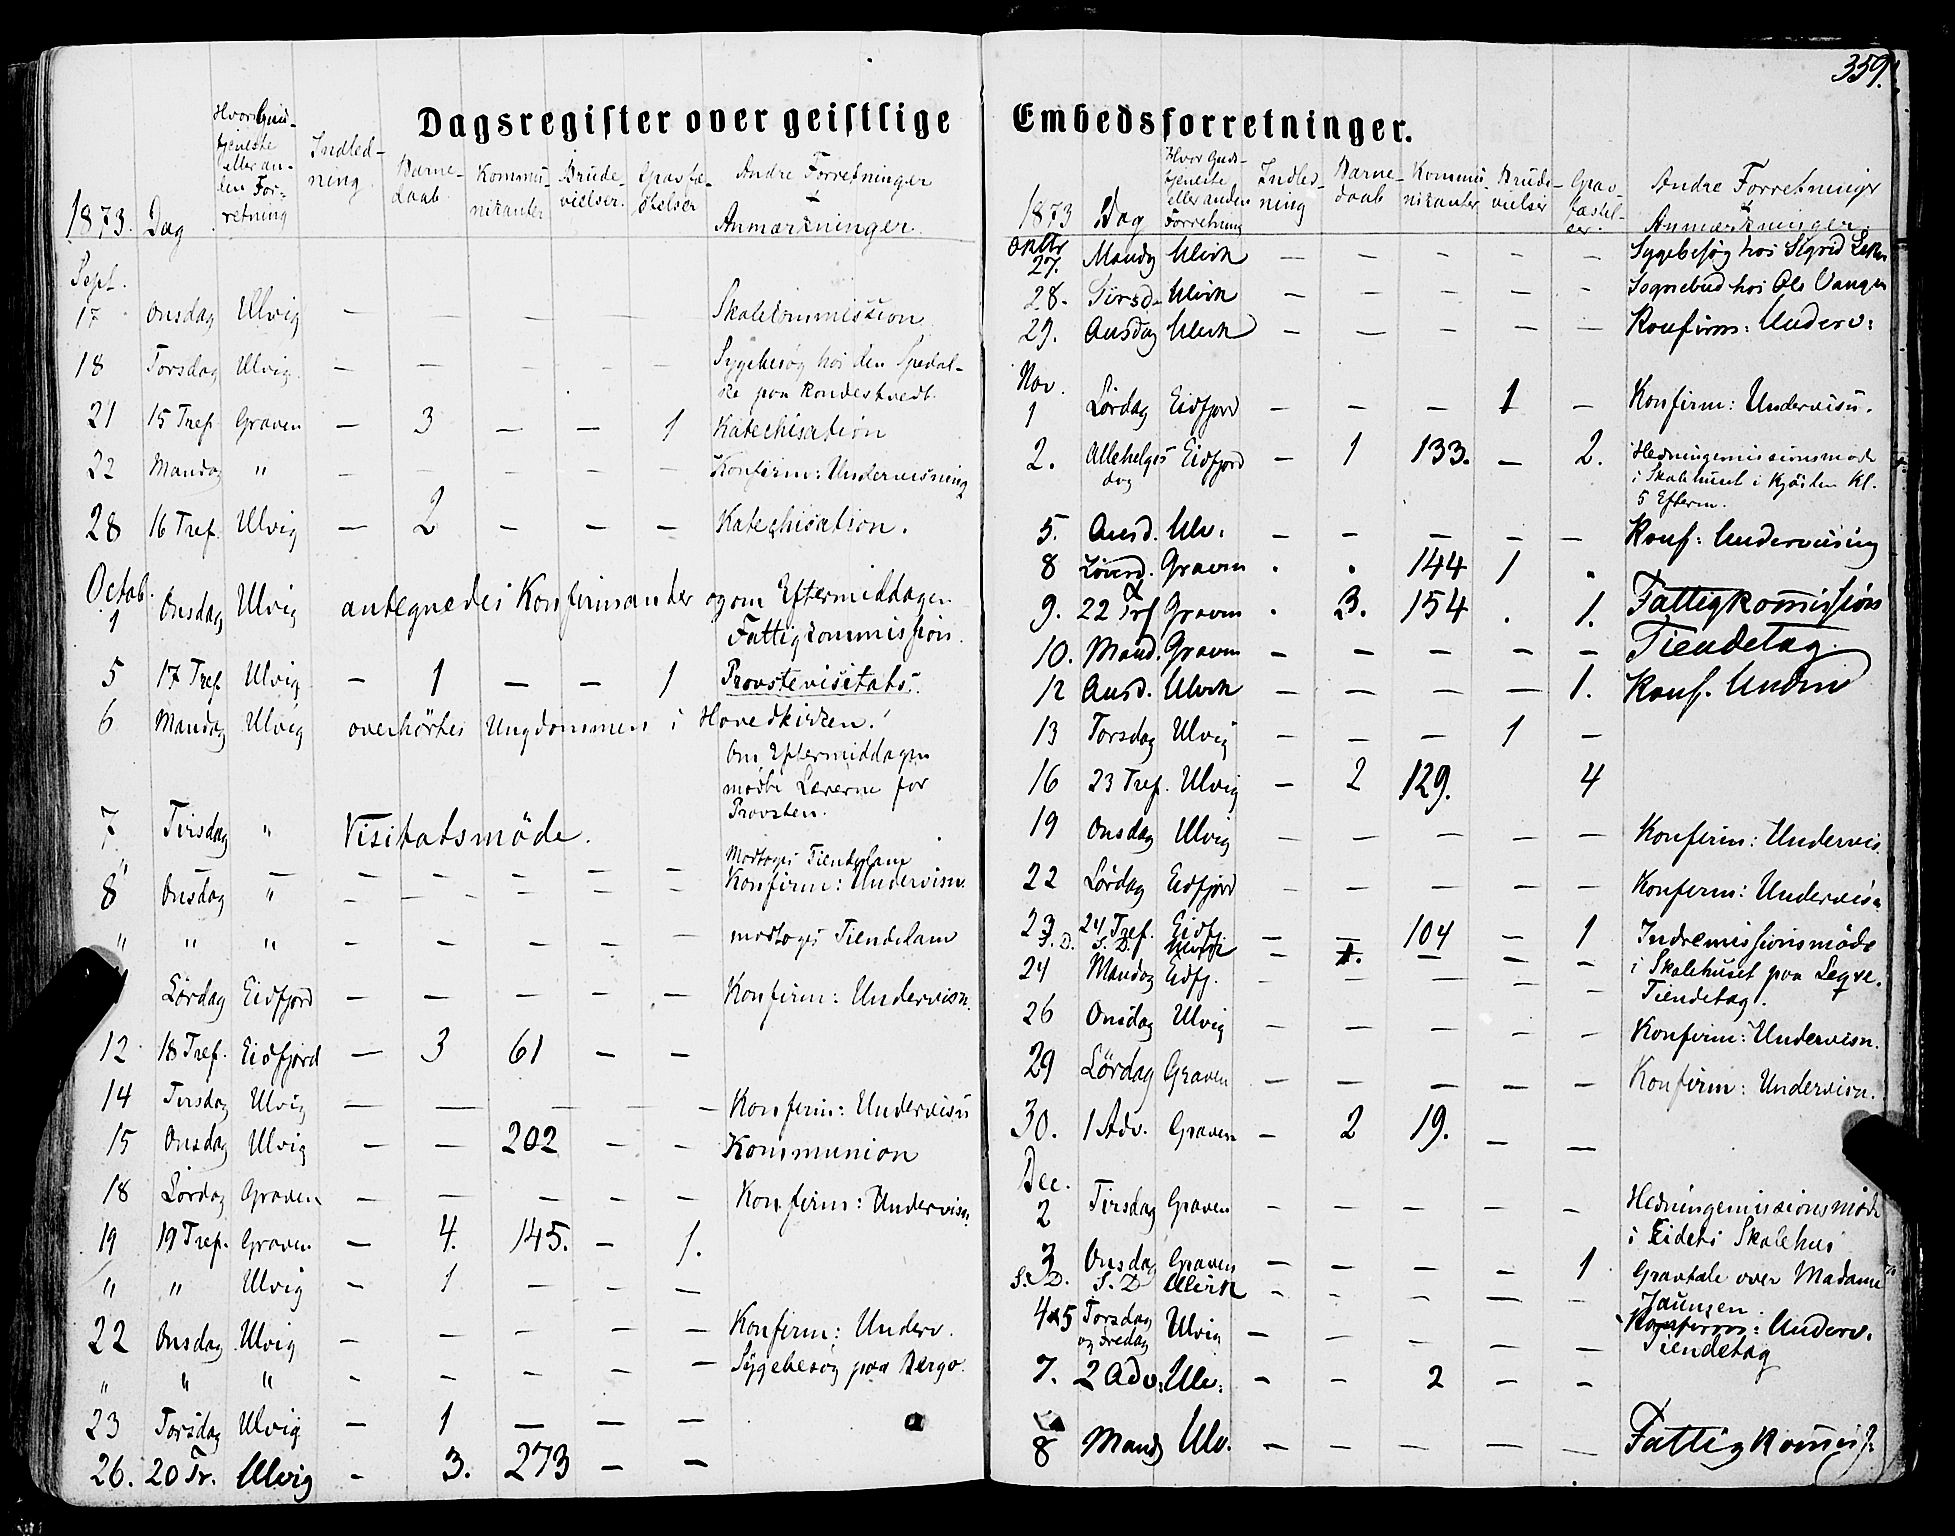 359.
Dagsregister over geistlige Embedsforretninger.
1873. Dag Hvor Gudstjeneste eller anden Forretning Indledning Barnedaab Kommunikanter Brudevielser. Gravfæstelser Andre Forretninger & Anmærkninger.
Sept.
17 Onsdag Ulvig — — — — — Skolekommission
18 Torsdag Ulvig. — — — — — Sygebesøg hos den Spedal-
ske paa Rondestvedt.
21 15 Tref. Graven — 3 — — 1 Katechisation
22 Mandag " — — — — — Konfirm: Undervisning
28 16 Tref. Ulvig — 2 — — — Katechisation.
Octob.
1 Onsdag Ulvig antegnedes Konfirmander og om Eftermiddagen
Fattigkommission.
5 17 Tref. Ulvig — 1 — — 1 Provstevisitats.
6 Mandag Ulvig overhørtes Ungdommen i Hovedkirken.
Om Eftermiddagen
mødte Lærerne for
Provsten.
7 Tirsdag " Visitatsmöde.
" — — — — — — — Modtoges Tiendelam
8 Onsdag " — — — — — Konfirm: Undervisn.
" " " — — — — — modtoges Tiendelam
Lørdag Eidfjord — — — — — Konfirm: Undervisn.
12 18 Tref. Eidfjord — 3 61 — —
14 Tirsdag Ulvig — — — — — Konfirm: Undervisn
15 Onsdag Ulvig — — 202 — — Kommunion
18 Lørdag Graven — — — — — Konfirm: Undervisn.
19 19 Tref. Graven — 4. 145. — 1.
" " Ulvig — 1 — — —
22 Onsdag Ulvig — — — — — Konfirm: Underv.
" " " — — — — — Sygebesøg paa Bergo.
23 Torsdag Ulvig — 1 — — —
26. 20 Tr. Ulvig — 3. 273 — —
1873 Dag Hvor Gudstjeneste eller anden Forretning Indledning Barnedaab Kommunikanter Brudevielser Gravfæstelser. Andre Forretninger & Anmærkninger.
Oktbr
27. Mandg Ulvik — — — — — Sygebesøg hos Sigrid
28. Tirsd. Ulvik — — — — — Sognebud hos Ole Vangen
29. Onsdag Ulvik — — — — — Konfirm: Underv:
Nov.
1 Lørdag Eidfjord — — — 1 — Konfirm: Undervisn.
2. Allehelges dag Eidfjord — 1 133. — 2. Hedningemissionsmøde
i Skolehuset i Kjærlen Kl.
5 Efterm.
5. Onsd. Ulv. — — — — — Konf: Undervisning
8 Løverd. Graven . . 144 1 .
9. 22 Trf Graven . 3. 154 . 1. Fattigkommission
10. Mand. Graven — — — — — Tiendetag.
12 Onsd. Ulvik — — — — 1. Konf. Underv
13 Torsdag Ulvig — — — 1 —
16 23 Tref. Ulvig — 2 129. 4
19 Onsdag Ulvig — — — — — Konfirm: Undervis.
22 Lørdag Eidfjord — — — — — Konfirm: Undervisn.
23 24 Tref. Eidfj. — — 104 — 1 Indremissionsmöde
S. D. S. D. Ulvik — 1. — — — i Skolehuset paa Legre.
24 Mandag Eidfj. — — — — — Tiendetag.
26 Onsdag Ulvig — — — — — Konfirm: Undervisn.
29 Lørdag Graven — — — — — Konfirm: Undervisn.
30. 1 Adv. Graven — 2 19. — —
Dec.
2 Tirsdag Graven — — — — — Hedningemissionsmøde
i Eidets Skolehus
3 Onsdag Graven — — — — 1 Gravtale over Madame
S. D. S. D Ulvik — — — — — Jaunsen.
4&5 Torsdag og Fredag Ulvig — — — — — Konfirm: Underv.
Tiendetag
7. 2 Adv: Ulv: — — 2 — —
8 Mandg Ulv. — — — — — Fattigkommis?.